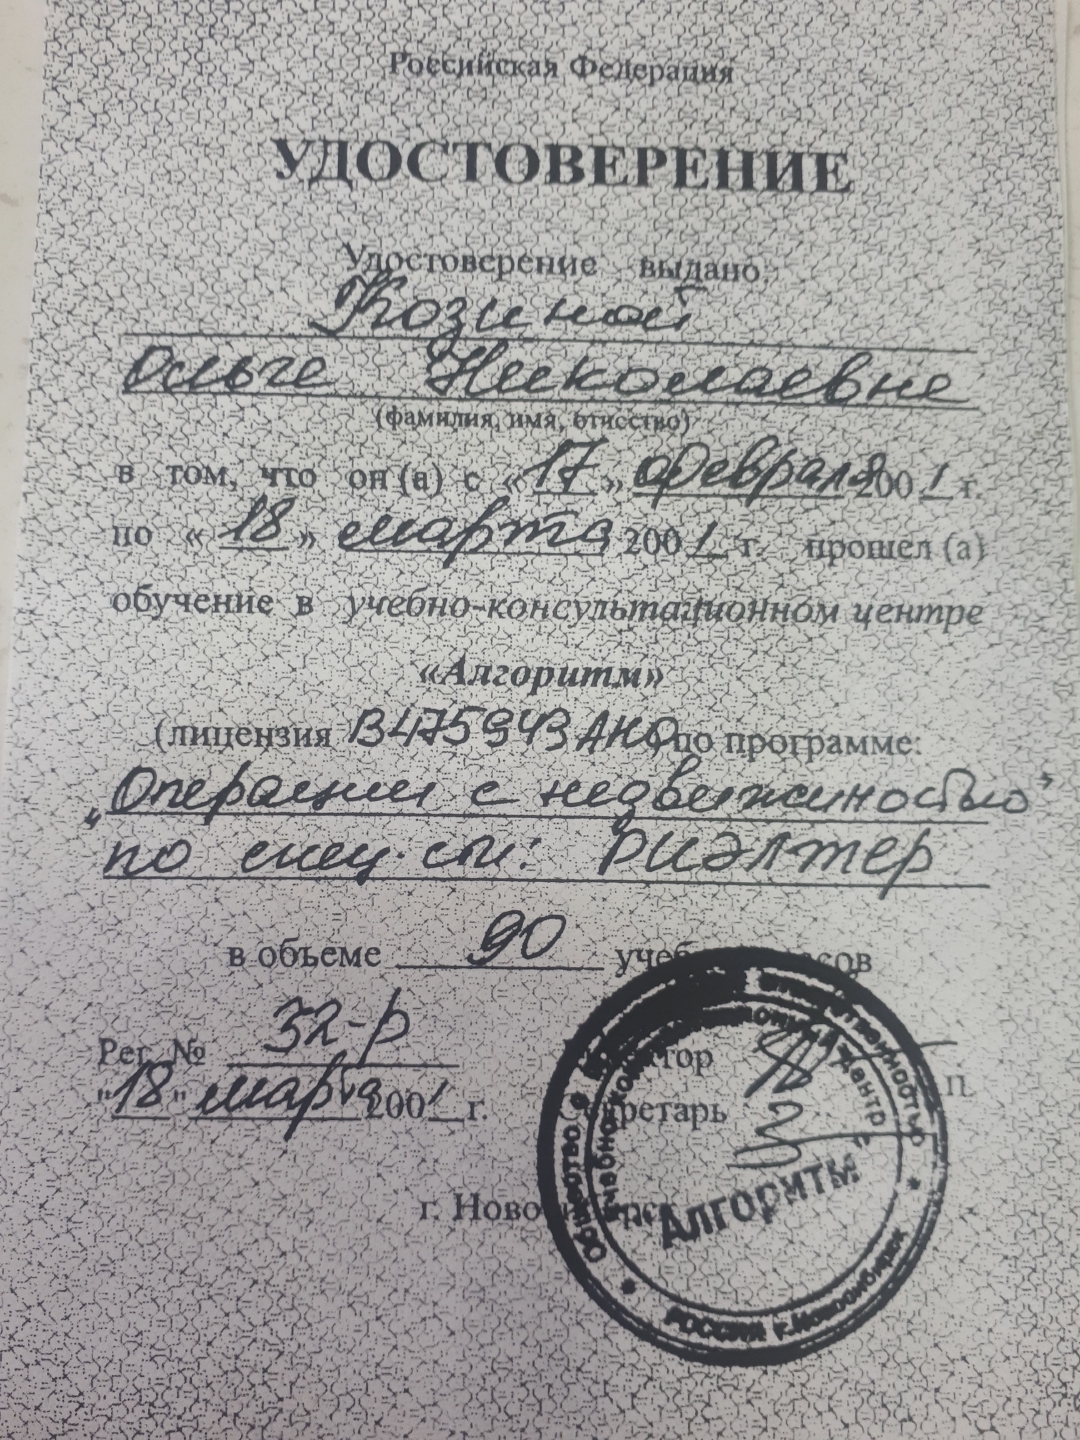 Российская Федерация
УДОСТОВЕРЕНИЕ
Удостоверение выдано:
Козиной
Ольге Николаевне
(фамилия, имя, отчество)
в том, что он (а) с «17» февраля 2001 г.
по «18» марта 2001 г. прошел (а)
обучение в учебно-консультационном центре
«Алгоритм»
(лицензия В475943 АНО по программе:
„Операции с недвижимостью"
по спец. сти: риэлтер
в объеме 90
Рег. № 32-р
"18" марта 2001 г.
Секретарь
П.
Общество с ответственностью
центр
"АЛГОРИТМ"
РОССИЯ г.Новосибирск